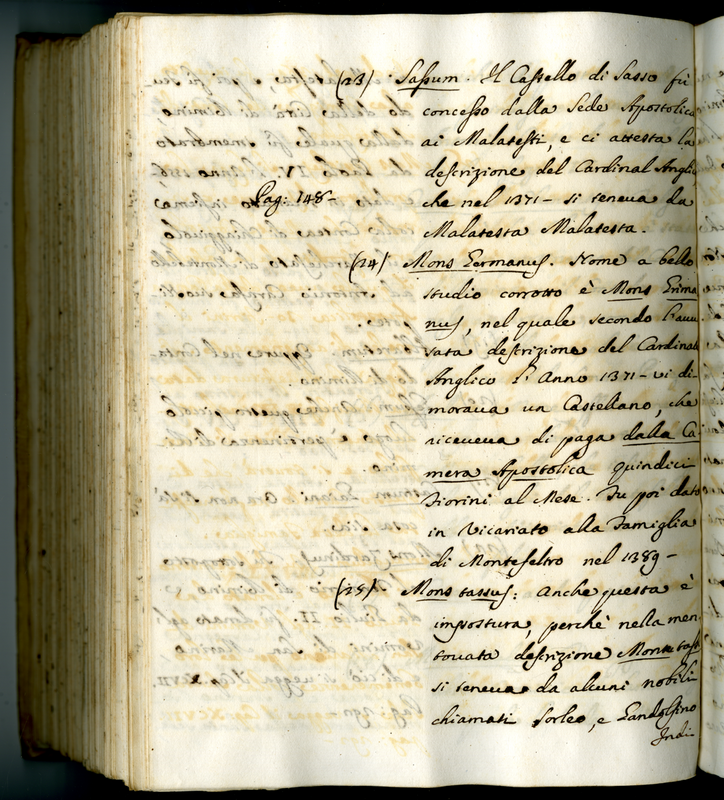 (23) Sassum. Il Castello di Sasso fù
concesso dalla Sede Apostolica
ai Malatesti, e ci attesta la
descrizione del Cardinal Anglic
Pag: 148-
che nel 1371- si teneva da
Malatesta Malatesta.
(24) Mons Germanus. Nome a bello
studio corrotto è Mons Erima
nus, nel quale secondo l'avvi
sata descrizione del Cardinal
Anglico l'Anno 1371- vi di-
morava un Castellano, che
riceveva di paga dalla Ca-
mera Apostolica quindici
Fiorini al Mese. Fu poi dato
in Vicariato alla Famiglia
di Montefeltro nel 1389-
(25) Mons tassus: Anche questa è
impostura, perchè nella men
tovata descrizione Monte tass
si teneva da alcuni nobili
chiamati Sorleo, e Landolfino
Indi